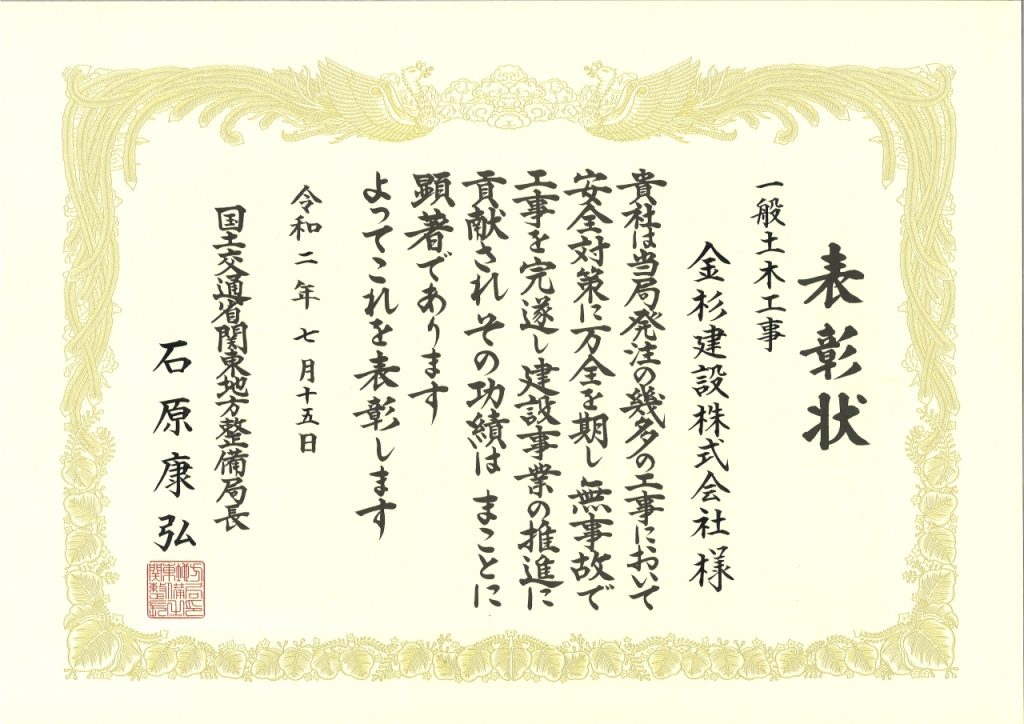 表彰状
一般土木工事
金杉建設株式会社様
貴社は当局発注の幾多の工事において
安全対策に万全を期し無事故で
工事を完遂し建設事業の推進に
貢献されその功績はまことに
顕著であります
よってこれを表彰します
令和二年七月十五日
国土交通省関東地方整備局長
石原康弘